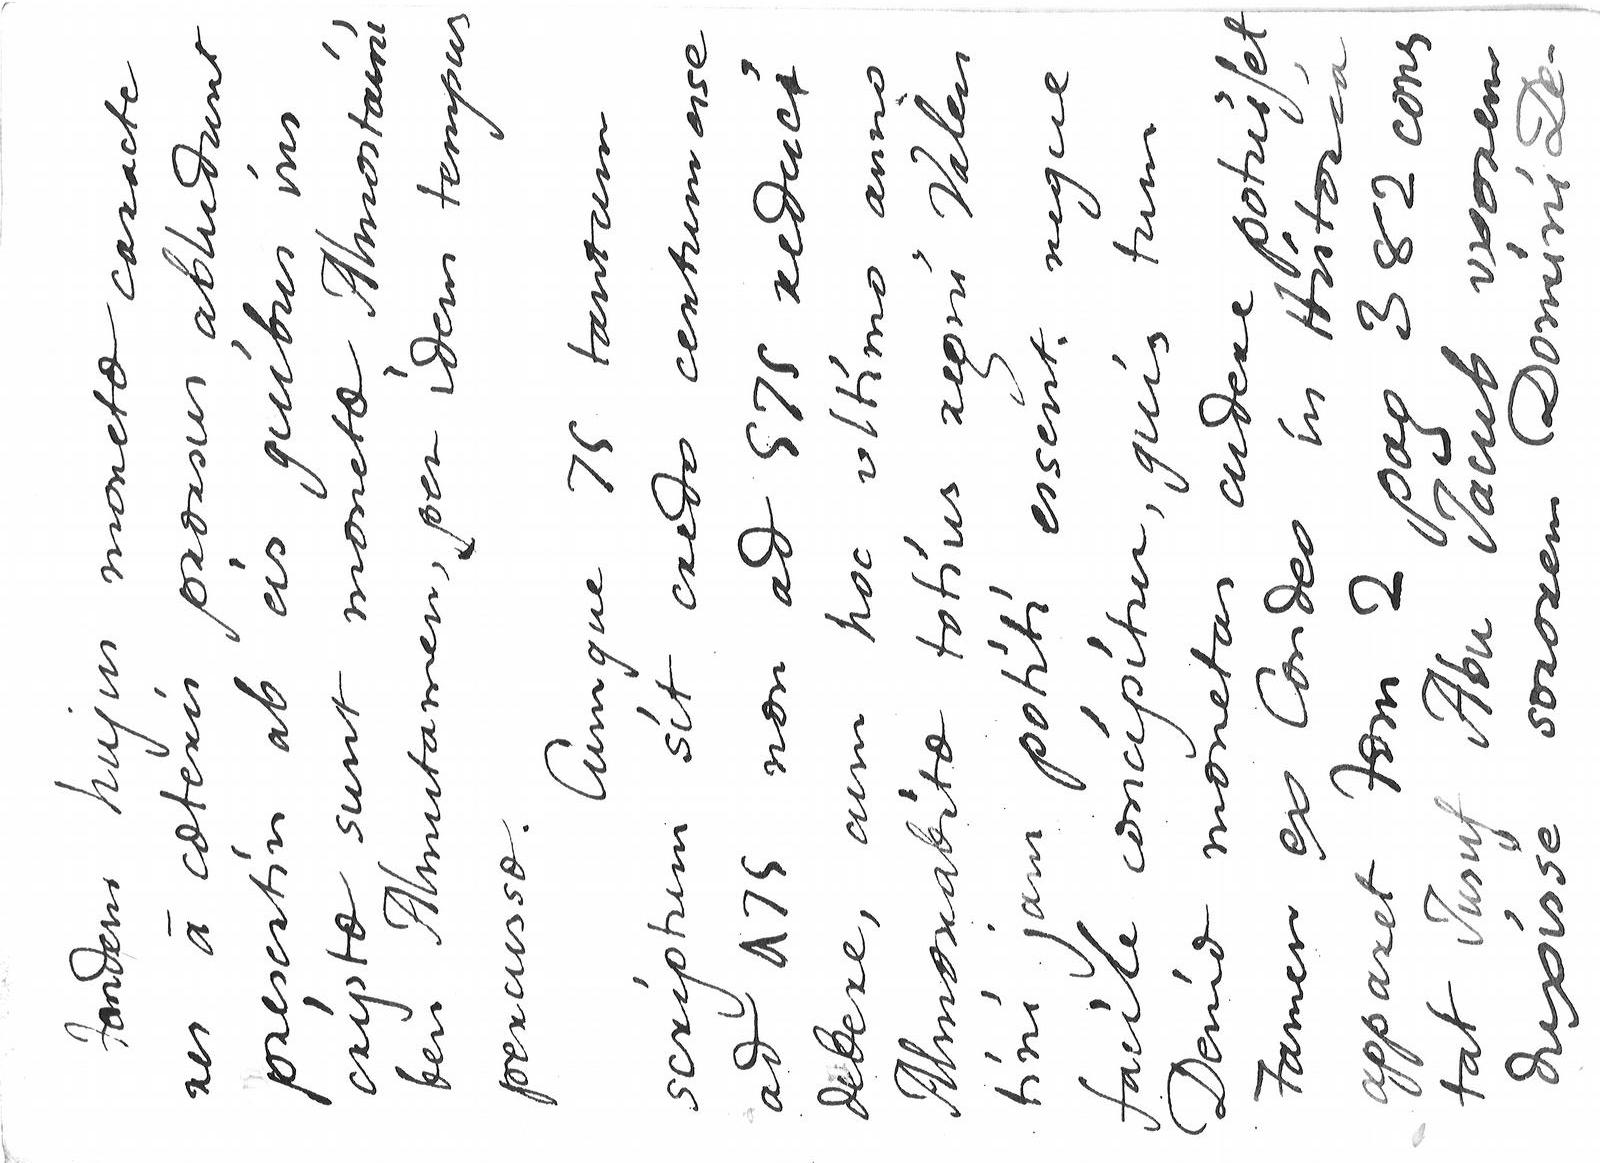 Tandem hujus monetæ caracte
res à cæteris prorsus abludunt
præsertin ab eis quibus ins
criptæ sunt monetæ Almostaini
ben Almutamen, per idem tempus
percussæ.
Cumque 75 tantum
scriptum sit credo centum esse
ad 475 non ad 575 reduci
debere, cum hoc ultimo anno
Almorabitæ totius regni Valen
tini jam potiti essent. neque
facile concipitur, quis tum
Deniæ monetas cudere potuisset
Tamen ex Condeo in Historia
apparet Tom 2 pag 382 cons
tat Jusuf Abu Jacub uxorem
duxisse sororem Domini De-